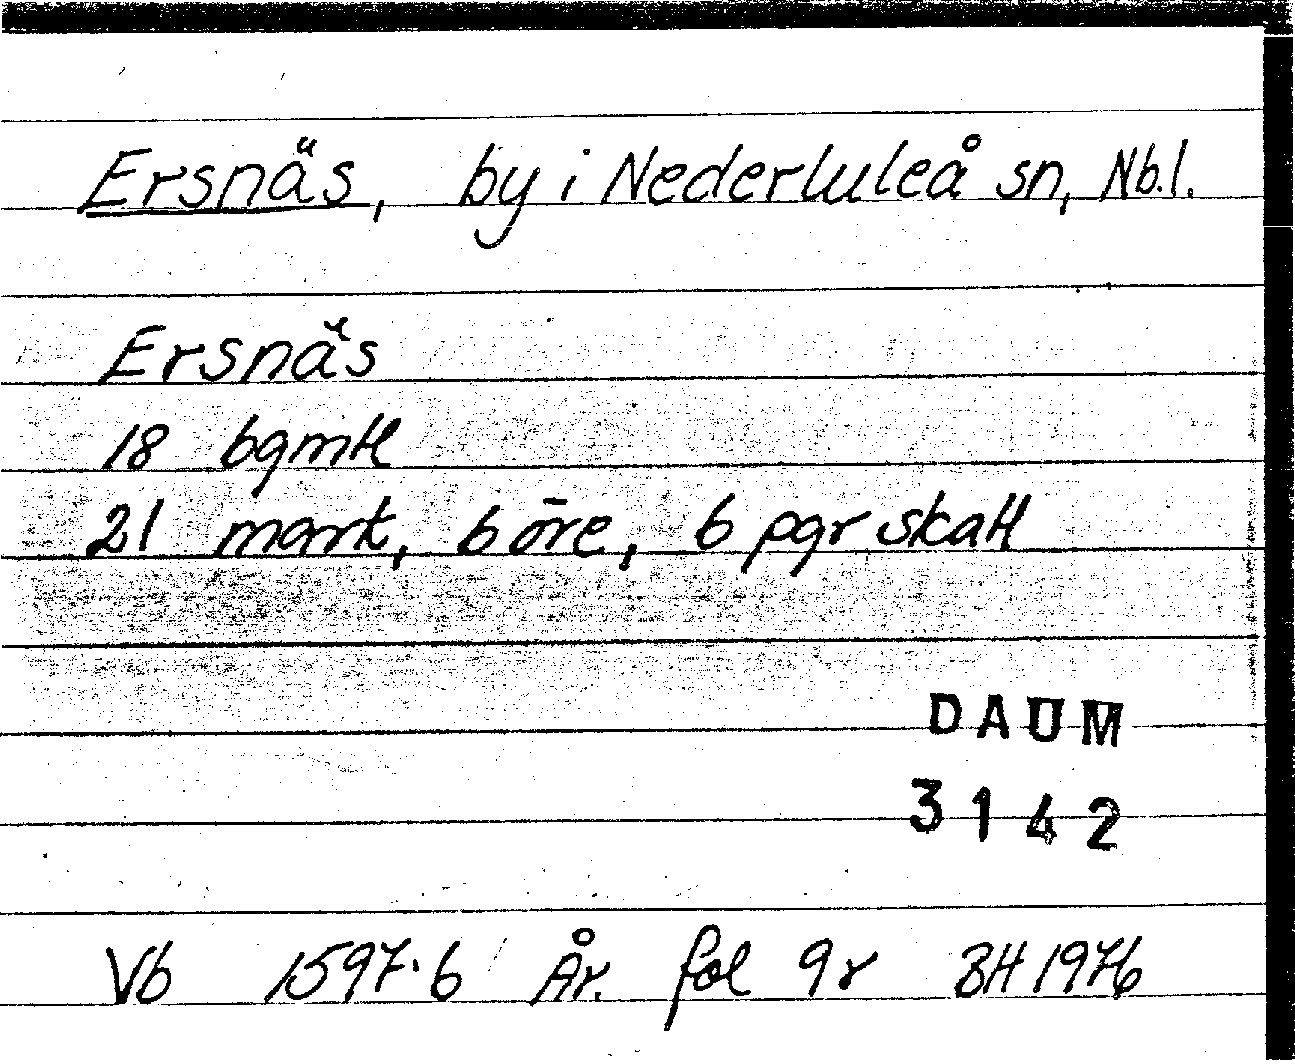 Ersnäs, by i Nederluleå sn, Nb.l.
Ersnäs
18 bgmtl
21 mark, 6 öre, 6 pgr skatt
DAUM
3142
Vb 1597:6 År. fol 9r BH 1976